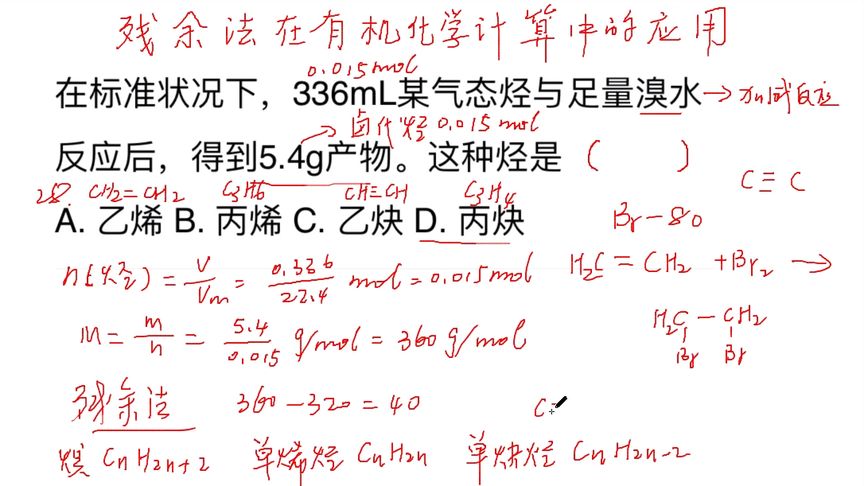 残余法在有机化学计算中的应用
0.015mol
在标准状况下，336mL某气态烃与足量溴水→加成反应
卤代烃0.015mol
反应后，得到5.4g产物。这种烃是（ ）
C≡C
28 CH2=CH2 C3H6 CH≡CH C3H4
A. 乙烯 B. 丙烯 C. 乙炔 D. 丙炔
Br-80
n(烃)=V/Vm=0.336/22.4 mol=0.015mol
H2C=CH2+Br2→
M=m/n=5.4/0.015 g/mol=360g/mol
H2C-CH2
Br Br
残余法 360-320=40
C=
烷 CnH2n+2 单烯烃 CnH2n 单炔烃 CnH2n-2